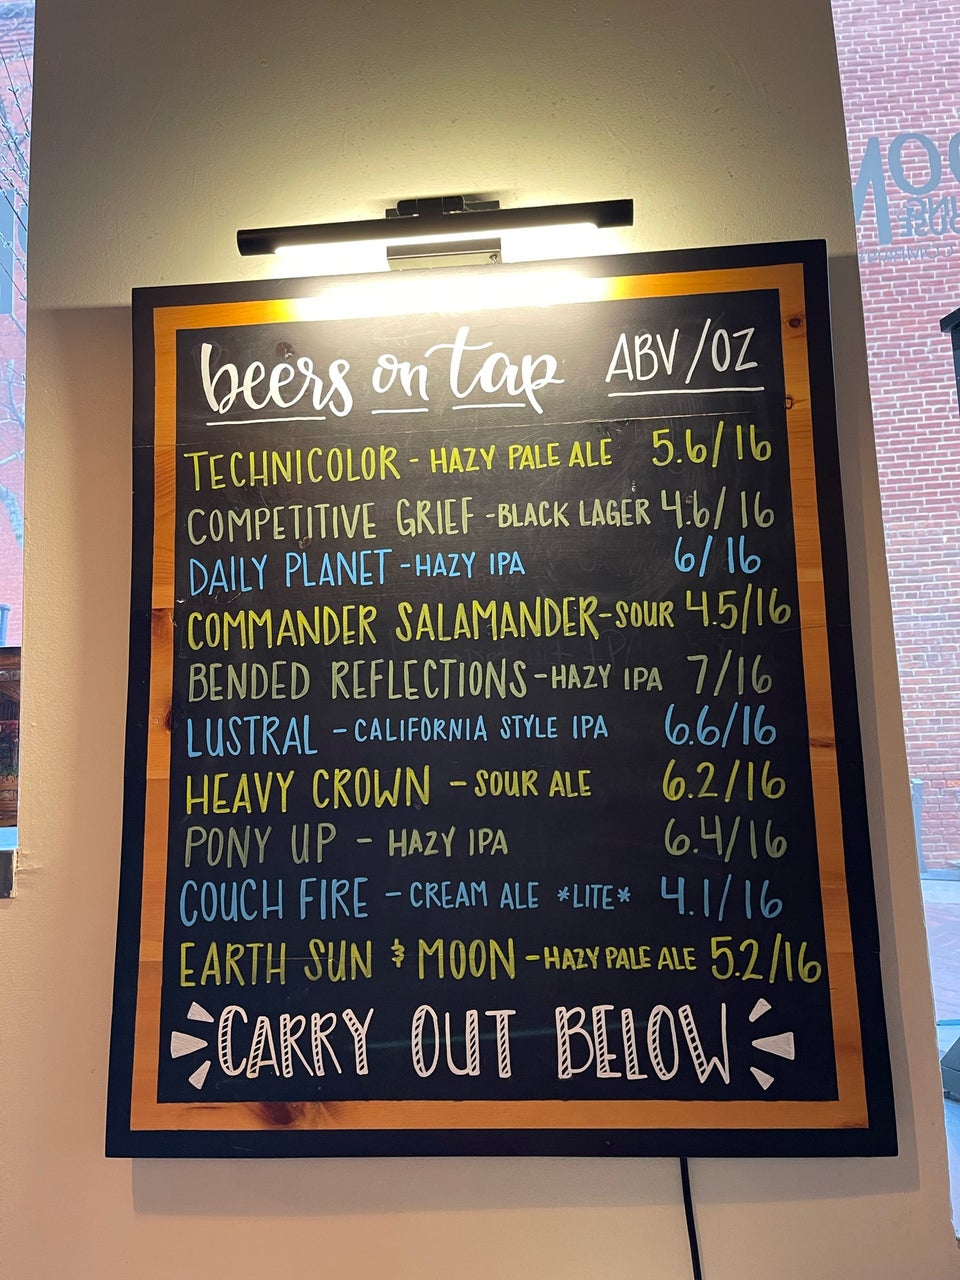 beers on tap ABV/OZ
TECHNICOLOR - HAZY PALE ALE 5.6/16
COMPETITIVE GRIEF - BLACK LAGER 4.6/16
DAILY PLANET - HAZY IPA 6/16
COMMANDER SALAMANDER - SOUR 4.5/16
BENDED REFLECTIONS - HAZY IPA 7/16
LUSTRAL - CALIFORNIA STYLE IPA 6.6/16
HEAVY CROWN - SOUR ALE 6.2/16
PONY UP - HAZY IPA 6.4/16
COUCH FIRE - CREAM ALE *LITE* 4.1/16
EARTH SUN & MOON - HAZY PALE ALE 5.2/16
CARRY OUT BELOW